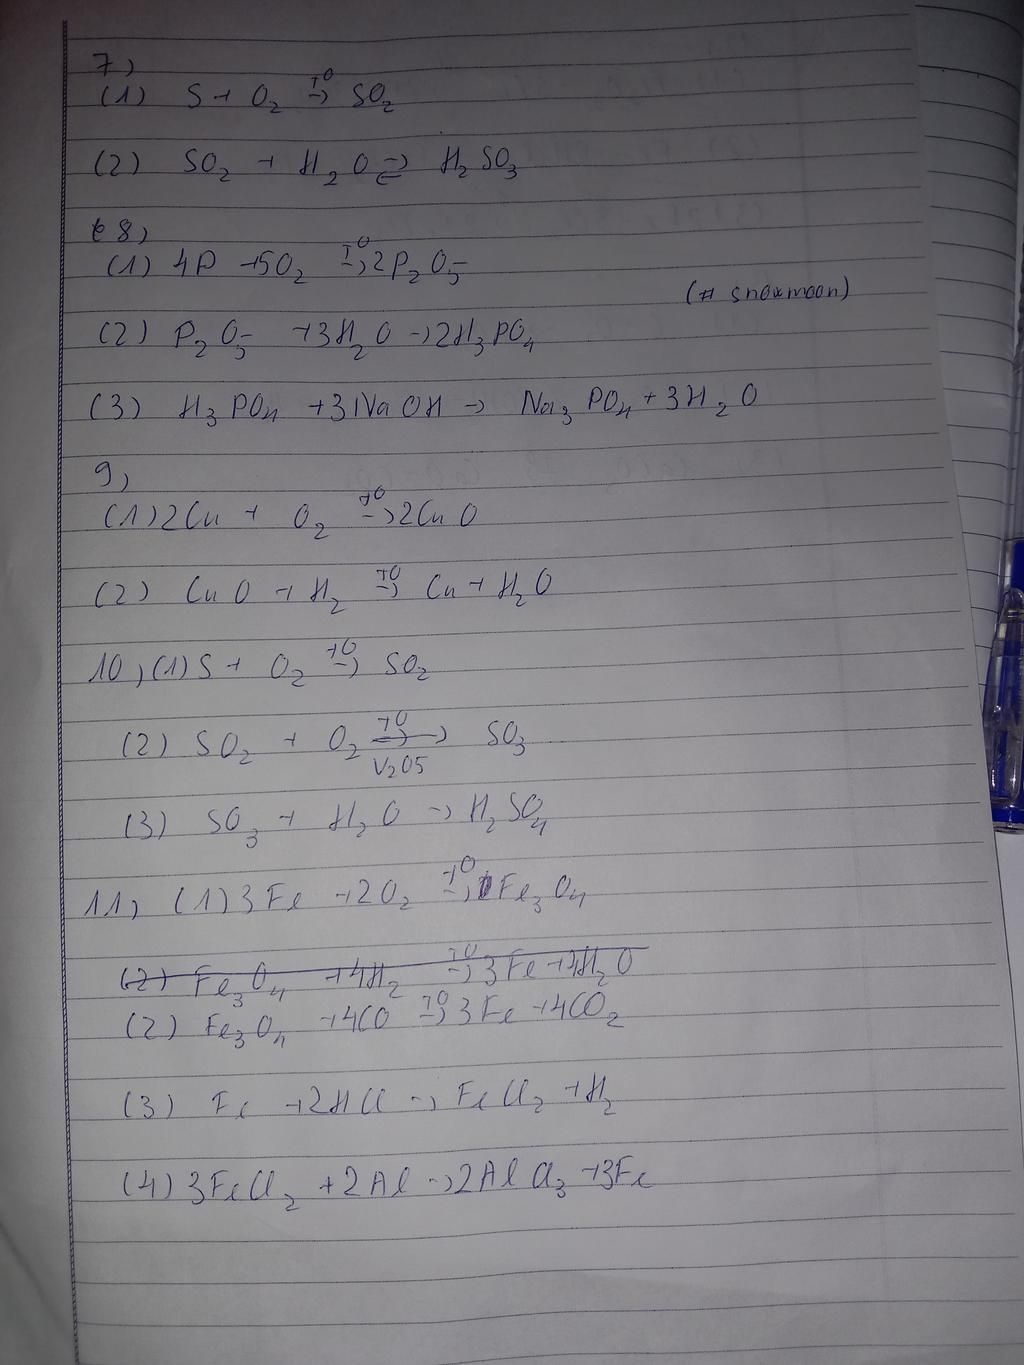 7)
(1) S + O2 t° → SO2
(2) SO2 + H2O ⇌ H2SO3
8)
(1) 4P + 5O2 t° → 2P2O5
(# snowmoon)
(2) P2O5 + 3H2O → 2H3PO4
(3) H3PO4 + 3NaOH → Na3PO4 + 3H2O
9)
(1) 2Cu + O2 t° → 2CuO
(2) CuO + H2 t° → Cu + H2O
10, (1) S + O2 t° → SO2
(2) SO2 + O2 t° → V2O5 SO3
(3) SO3 + H2O → H2SO4
11, (1) 3Fe + 2O2 t° → Fe3O4
(2) Fe3O4 + 4H2 t° → 3Fe + 4H2O
(2) Fe3O4 + 4CO t° → 3Fe + 4CO2
(3) Fe + 2HCl → FeCl2 + H2
(4) 3FeCl2 + 2Al → 2AlCl3 + 3Fe